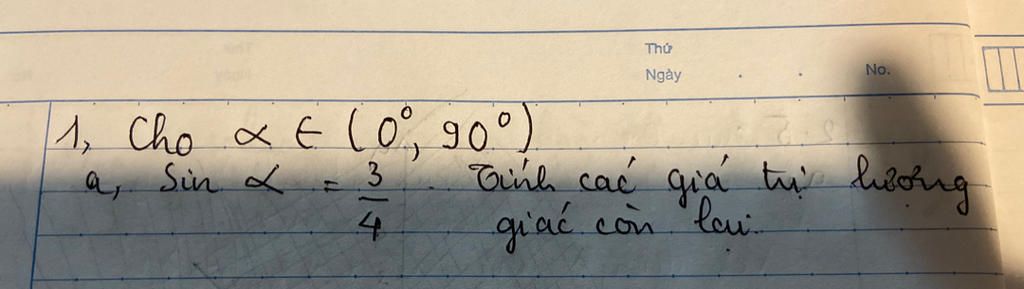 Thứ
Ngày . . No.
1, Cho α ∈ (0°, 90°)
a, Sin α = 3/4. Tính các giá trị lượng
giác còn lại.